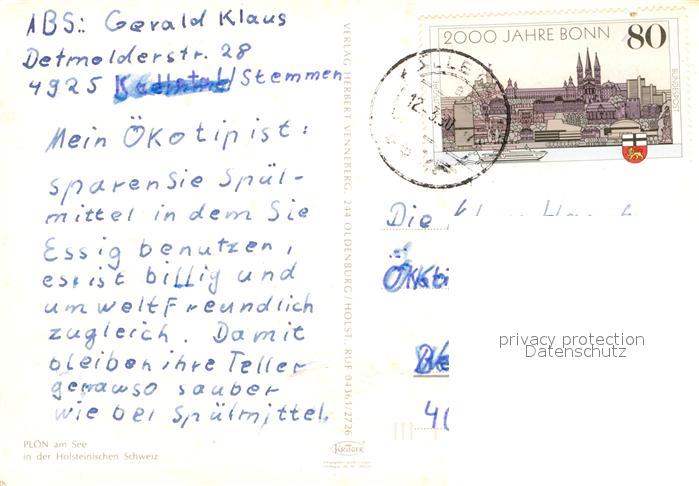 ABS: Gerald Klaus
Detmolderstr. 28
4925 /Stemmen
Mein ÖKotip ist:
sparen Sie Spül-
mittel in dem Sie
Essig benutzen,
es ist billig und
umweltfreundlich
zugleich. Damit
bleiben ihre Teller
genauso sauber
wie bei Spülmittel.
PLÖN am See
in der Holsteinischen Schweiz
VERLAG HERBERT VENNEBERG, 244 OLDENBURG/HOLST. RUF 04361/2726
KRÜGER
2000 JAHRE BONN 80
BUNDESPOST
Die
ÖKoti
privacy protection
Datenschutz